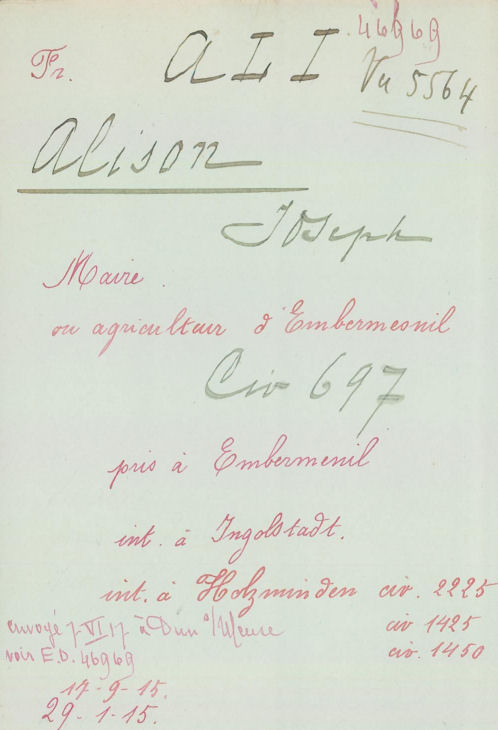 46969
Fr. ALI Vu 5564
Alison
Joseph
Maire
ou agriculteur d'Embermesnil
Civ 697
pris à Embermenil
int. à Ingolstadt.
int. à Holzminden civ. 2225
civ 1425
civ. 1450
envoyé 7-VI 17 à Dun s/Meuse
voir E.D. 46969
17-9-15.
29-1-15.